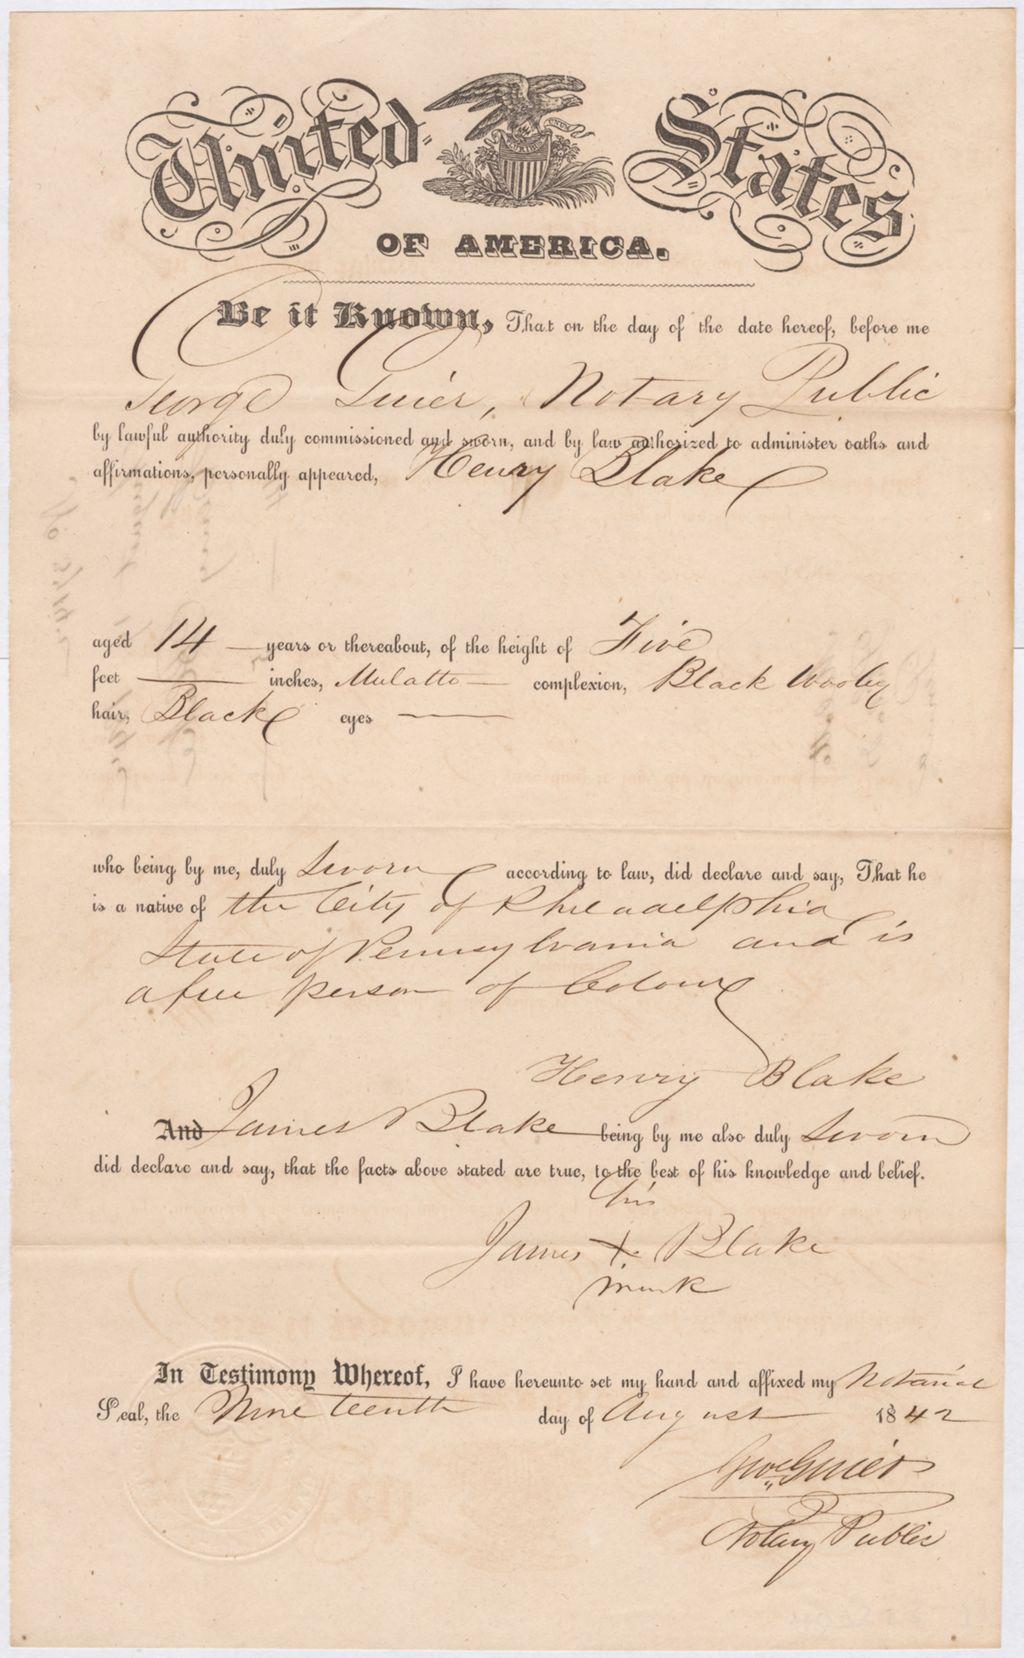 United States
OF AMERICA.
Be it Known, That on the day of the date hereof, before me
George Guier, Notary Public
by lawful authority duly commissioned and sworn, and by law authorized to administer oaths and
affirmations, personally appeared, Henry Blake
aged 14 years or thereabout, of the height of Five
feet — inches, Mulatto — complexion, Black Wooley
hair, Black eyes —
who being by me, duly Sworn according to law, did declare and say, That he
is a native of the City of Philadelphia
State of Pennsylvania and is
a free person of Colour
Henry Blake
And James Blake being by me also duly Sworn
did declare and say, that the facts above stated are true, to the best of his knowledge and belief.
his
James X Blake
mark
In Testimony Whereof, I have hereunto set my hand and affixed my Notarial
Seal, the Nineteenth day of August 1842
Geo Guier
Notary Public